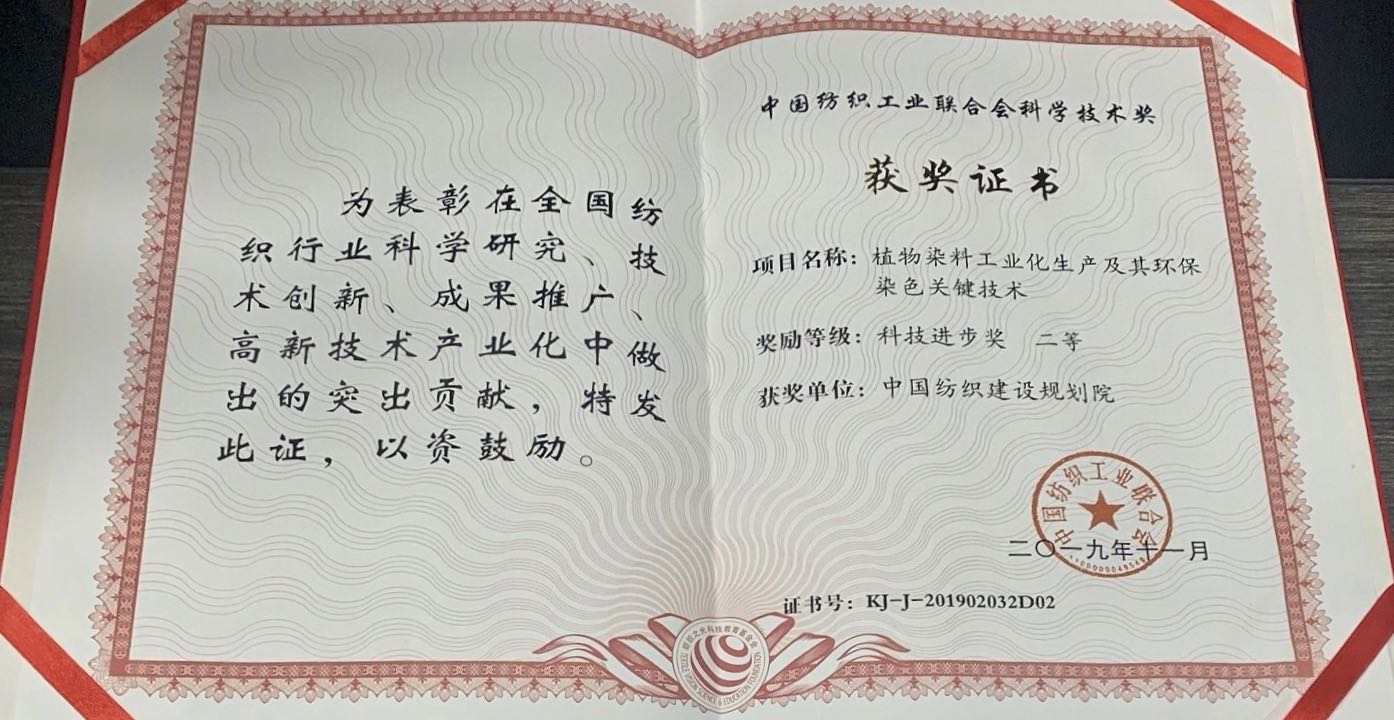 为表彰在全国纺
织行业科学研究、技
术创新、成果推广、
高新技术产业化中做
出的突出贡献，特发
此证，以资鼓励。
中国纺织工业联合会科学技术奖
获奖证书
项目名称：植物染料工业化生产及其环保
染色关键技术
奖励等级：科技进步奖 二等
获奖单位：中国纺织建设规划院
中国纺织工业联合会
二〇一九年十一月
证书号：KJ-J-201902032D02
纺织之光科技教育基金会
TEXTILE VISION SCIENCE & EDUCATION FOUNDATION